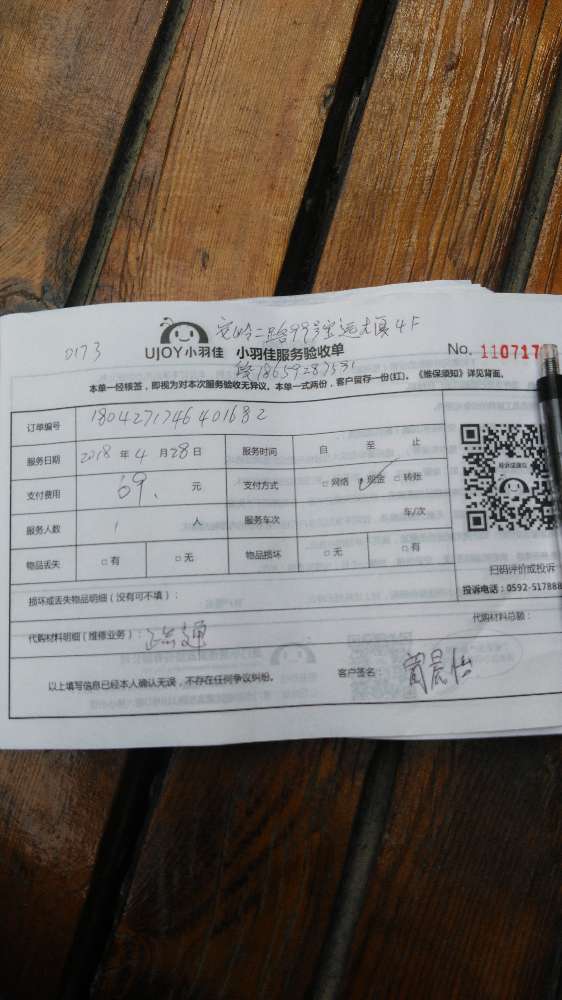 0173
安岭二路99号宝运大厦4F
UJOY小羽佳 小羽佳服务验收单 No. 110717
18659287531
本单一经核签，即视为对本次服务验收无异议。本单一式两份，客户留存一份(红)。《维保须知》详见背面。
订单编号 1804271746401682
服务日期 2018 年 4 月 28 日 服务时间 自 至 止
支付费用 69. 元 支付方式 □ 网络 ☑ 现金 □ 转账
服务人数 1 人 服务车次 车/次
物品丢失 □ 有 □ 无 物品损坏 □ 无 □ 有
扫码评价或投诉
投诉电话：0592-517888
损坏或丢失物品明细（没有可不填）：
代购材料明细（维修业务）：
代购材料总额：
以上填写信息已经本人确认无误，不存在任何争议纠纷。 客户签名： 晨怡